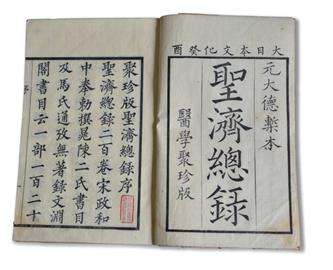 大日本文化癸酉
元大德槧本
聖濟總錄
醫學聚珍版
聚珍版聖濟總錄序
聖濟總錄二百卷宋政和
中奉勅撰晁陳二氏書目
及馬氏通攷無著錄文淵
閣書目云一部一百二十